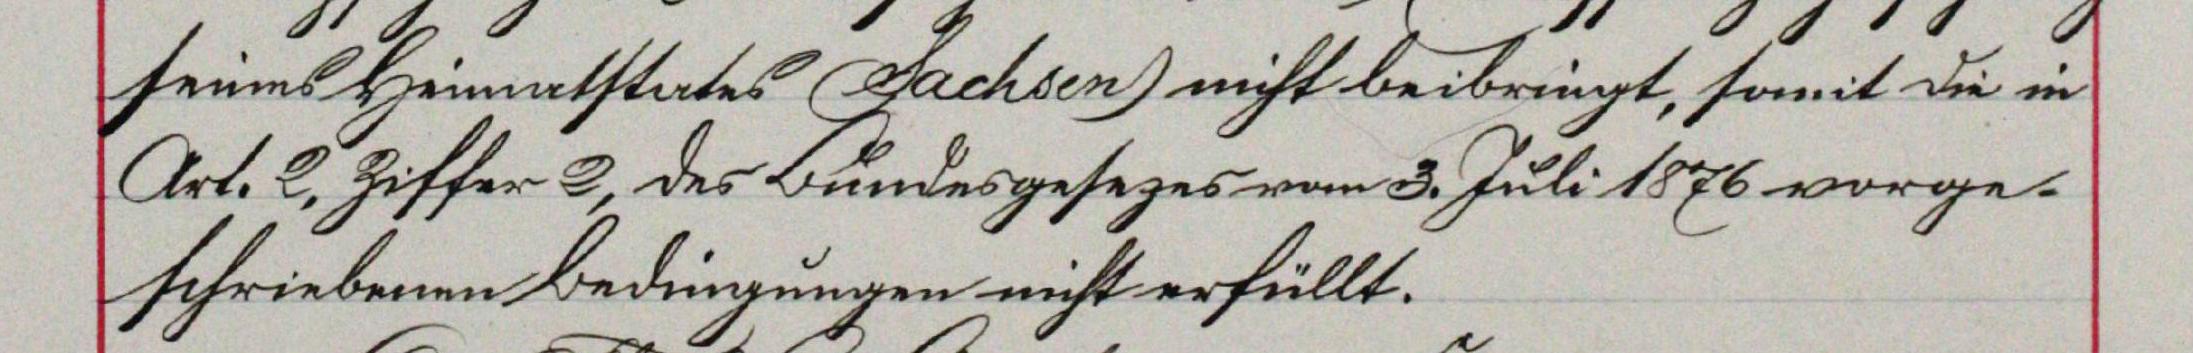 seines Heimatstates (Sachsen) nicht beibringt, somit die in
Art. 2, Ziffer 2, des Bundesgesezes vom 3. Juli 1876 vorge-
schriebenen Bedingungen nicht erfüllt.